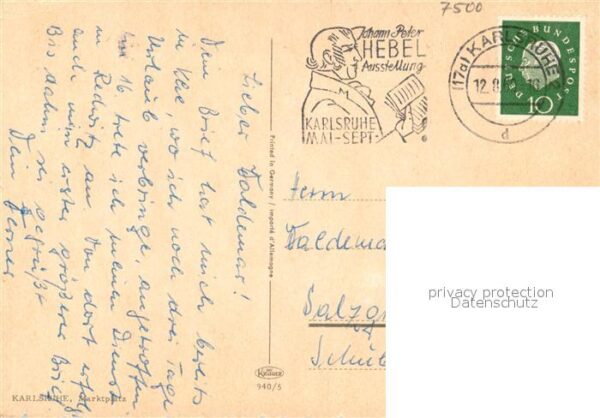 7500
Johann Peter
HEBEL
Ausstellung
KARLSRUHE
MAI-SEPT.
(17a) KARLSRUHE
12.8.
d
DEUTSCHE BUNDESPOST
10
Lieber Waldemar!
Dein Brief hat mich bereits
in Khe, wo ich noch drei Tage
Urlaub verbringe, angetroffen.
16 trete ich meinen Dienst
in Redwitz an. Von dort erfolgt
auch mein erster größerer Brief.
Bis dahin sei gegrüßt
Dein Werner
Printed in Germany / importé d'Allemagne
Krüger
940/5
KARLSRUHE, Marktplatz
Herrn
Waldemar
Salzg
Schul
privacy protection
Datenschutz